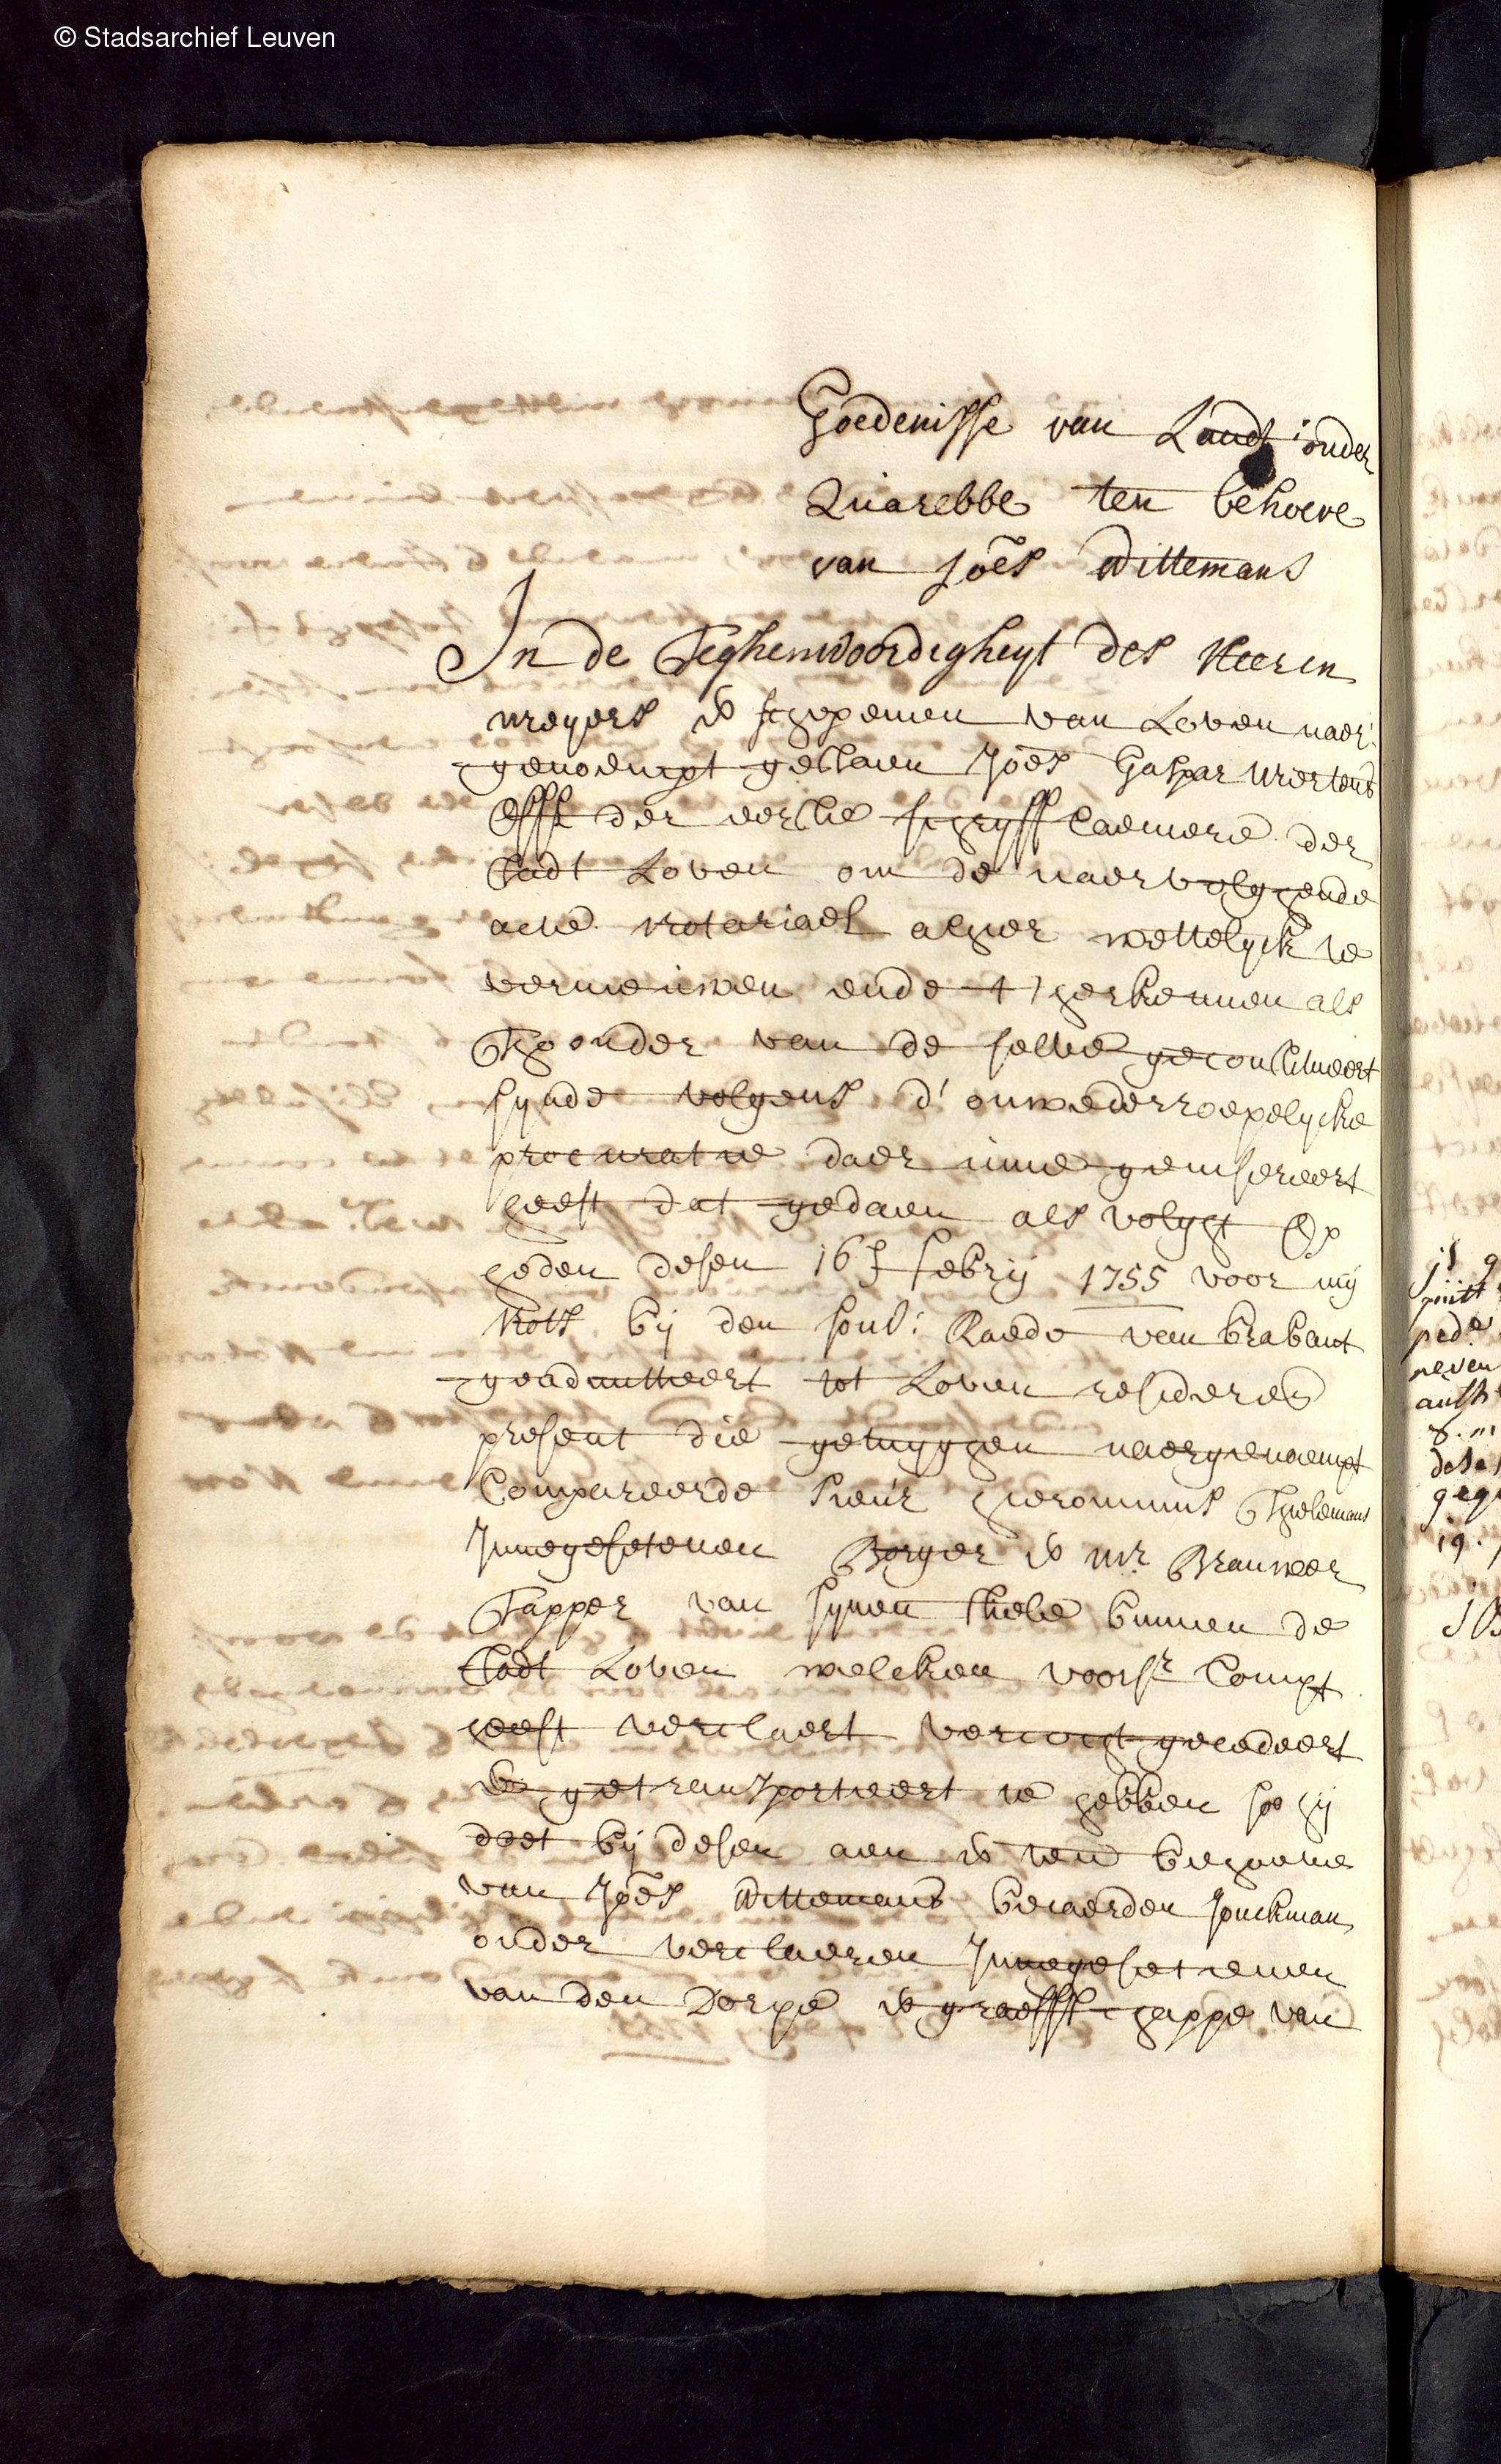 © Stadsarchief Leuven
Goedenisse van Landt onder
Quarebbe ten behoeve
van Joēs Wittemans
In de Teghenwoordigheyt des Heeren
meyers et schepenen van Loven naer:
genoempt gestaen Joēs Gaspar Mertens
Offl der eerste schryff Caemere der
Stadt Loven om de naervolghende
acte Notariael alhier wettelyck te
vernieuwen ende t' herkennen als
Thoonder van de selve geconstitueert
synde volgens d' onwederroepelycke
procuratie daer inne geinsereert
heeft dat gedaen als volght
heden desen 16 febrij 1755 voor mij
Nots bij den souv: Raede van Brabant
geadmitteert tot Loven resideren
present die getuyghen naergenoempt
Compareerde Sieur hieronimus Thielemans
Innegesetenen Borger et mr Brauwer
Tapper van synen stiele binnen de
Stadt Loven welcken voors Compt
heeft verclaert vercocht gecedeert
et getransporteert te hebben soo hij
doet bij desen aen et ten behoeve
van Joēs Wittemans bejaerden jonckman
onder verclaeren Innegesetenen
van den Dorpe et graeffschappe van